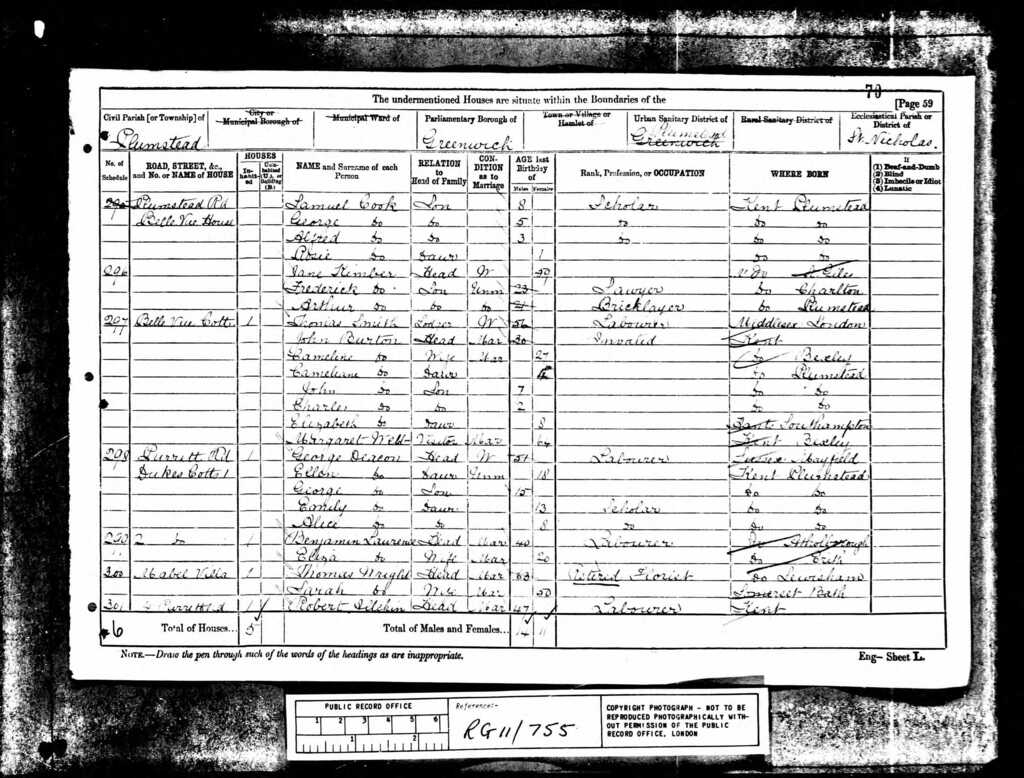 70
The undermentioned Houses are situate within the Boundaries of the
[Page 59
Civil Parish [or Township] of
City or Municipal Borough of
Municipal Ward of
Parliamentary Borough of
Town or Village or Hamlet of
Urban Sanitary District of
Rural Sanitary District of
Ecclesiastical Parish or District of
Plumstead
Greenwich
Plumstead
Greenwich
St. Nicholas.
No. of Schedule
ROAD, STREET, &c., and No. or NAME of HOUSE
HOUSES
Inhabited
NAME and Surname of each Person
RELATION to Head of Family
CONDITION as to Marriage
AGE last Birthday of
Males
Females
Rank, Profession, or OCCUPATION
WHERE BORN
If
(1) Deaf-and-Dumb
(2) Blind
(3) Imbecile or Idiot
(4) Lunatic
Plumstead Rd Samuel Cook Son 8 Scholar Kent Plumstead
Belle Vue House George Do Do 5 Do Do Do
Alfred Do Do 3 Do Do Do
Rosie Do Daur 1 Do Do
296 Jane Kimber Head W Do St Giles
Frederick Do Son Unm 23 Sawyer Do Charlton
Arthur Do Do Do 21 Bricklayer Do Plumstead
297 Belle Vue Cott 1 Thomas Smith Lodger W 56 Labourer Middlesex London
John Burton Head Mar 30 Invalid Kent
Cameline Do Wife Mar 27 Do Bexley
Cameliane Do Daur Do Plumstead
John Do Son 7 Do Do
Charles Do Do 2 Do Do
Elizabeth Do Daur 8 Hants Southampton
Margaret Visitor Mar 64 Kent Bexley
298 Purrett Rd 1 George Deacon Head W 51 Labourer Sussex Mayfield
Dukes Cott 1 Ellen Do Daur Unm 18 Kent Plumstead
George Do Son 15 Do Do
Emily Do Daur 13 Scholar Do Do
Alice Do Do 8 Do Do Do
2 Do 1 Benjamin Laurence Head Mar 40 Labourer Do
Eliza Do Wife Mar 20 Do Erith
300 Mabel Villa 1 Thomas Wright Head Mar 63 Retired Florist Do Lewisham
Sarah Do Wife Mar 50 Somerset Bath
301 Purrett Rd 1 Robert Head Mar 47 Labourer Kent
6 Total of Houses... 5 Total of Males and Females... 14 11
NOTE.—Draw the pen through such of the words of the headings as are inappropriate.
Eng— Sheet L.
PUBLIC RECORD OFFICE
1 2 3 4 5 6
1 2
Reference:-
RG 11/755
COPYRIGHT PHOTOGRAPH - NOT TO BE
REPRODUCED PHOTOGRAPHICALLY WITH-
OUT PERMISSION OF THE PUBLIC
RECORD OFFICE, LONDON